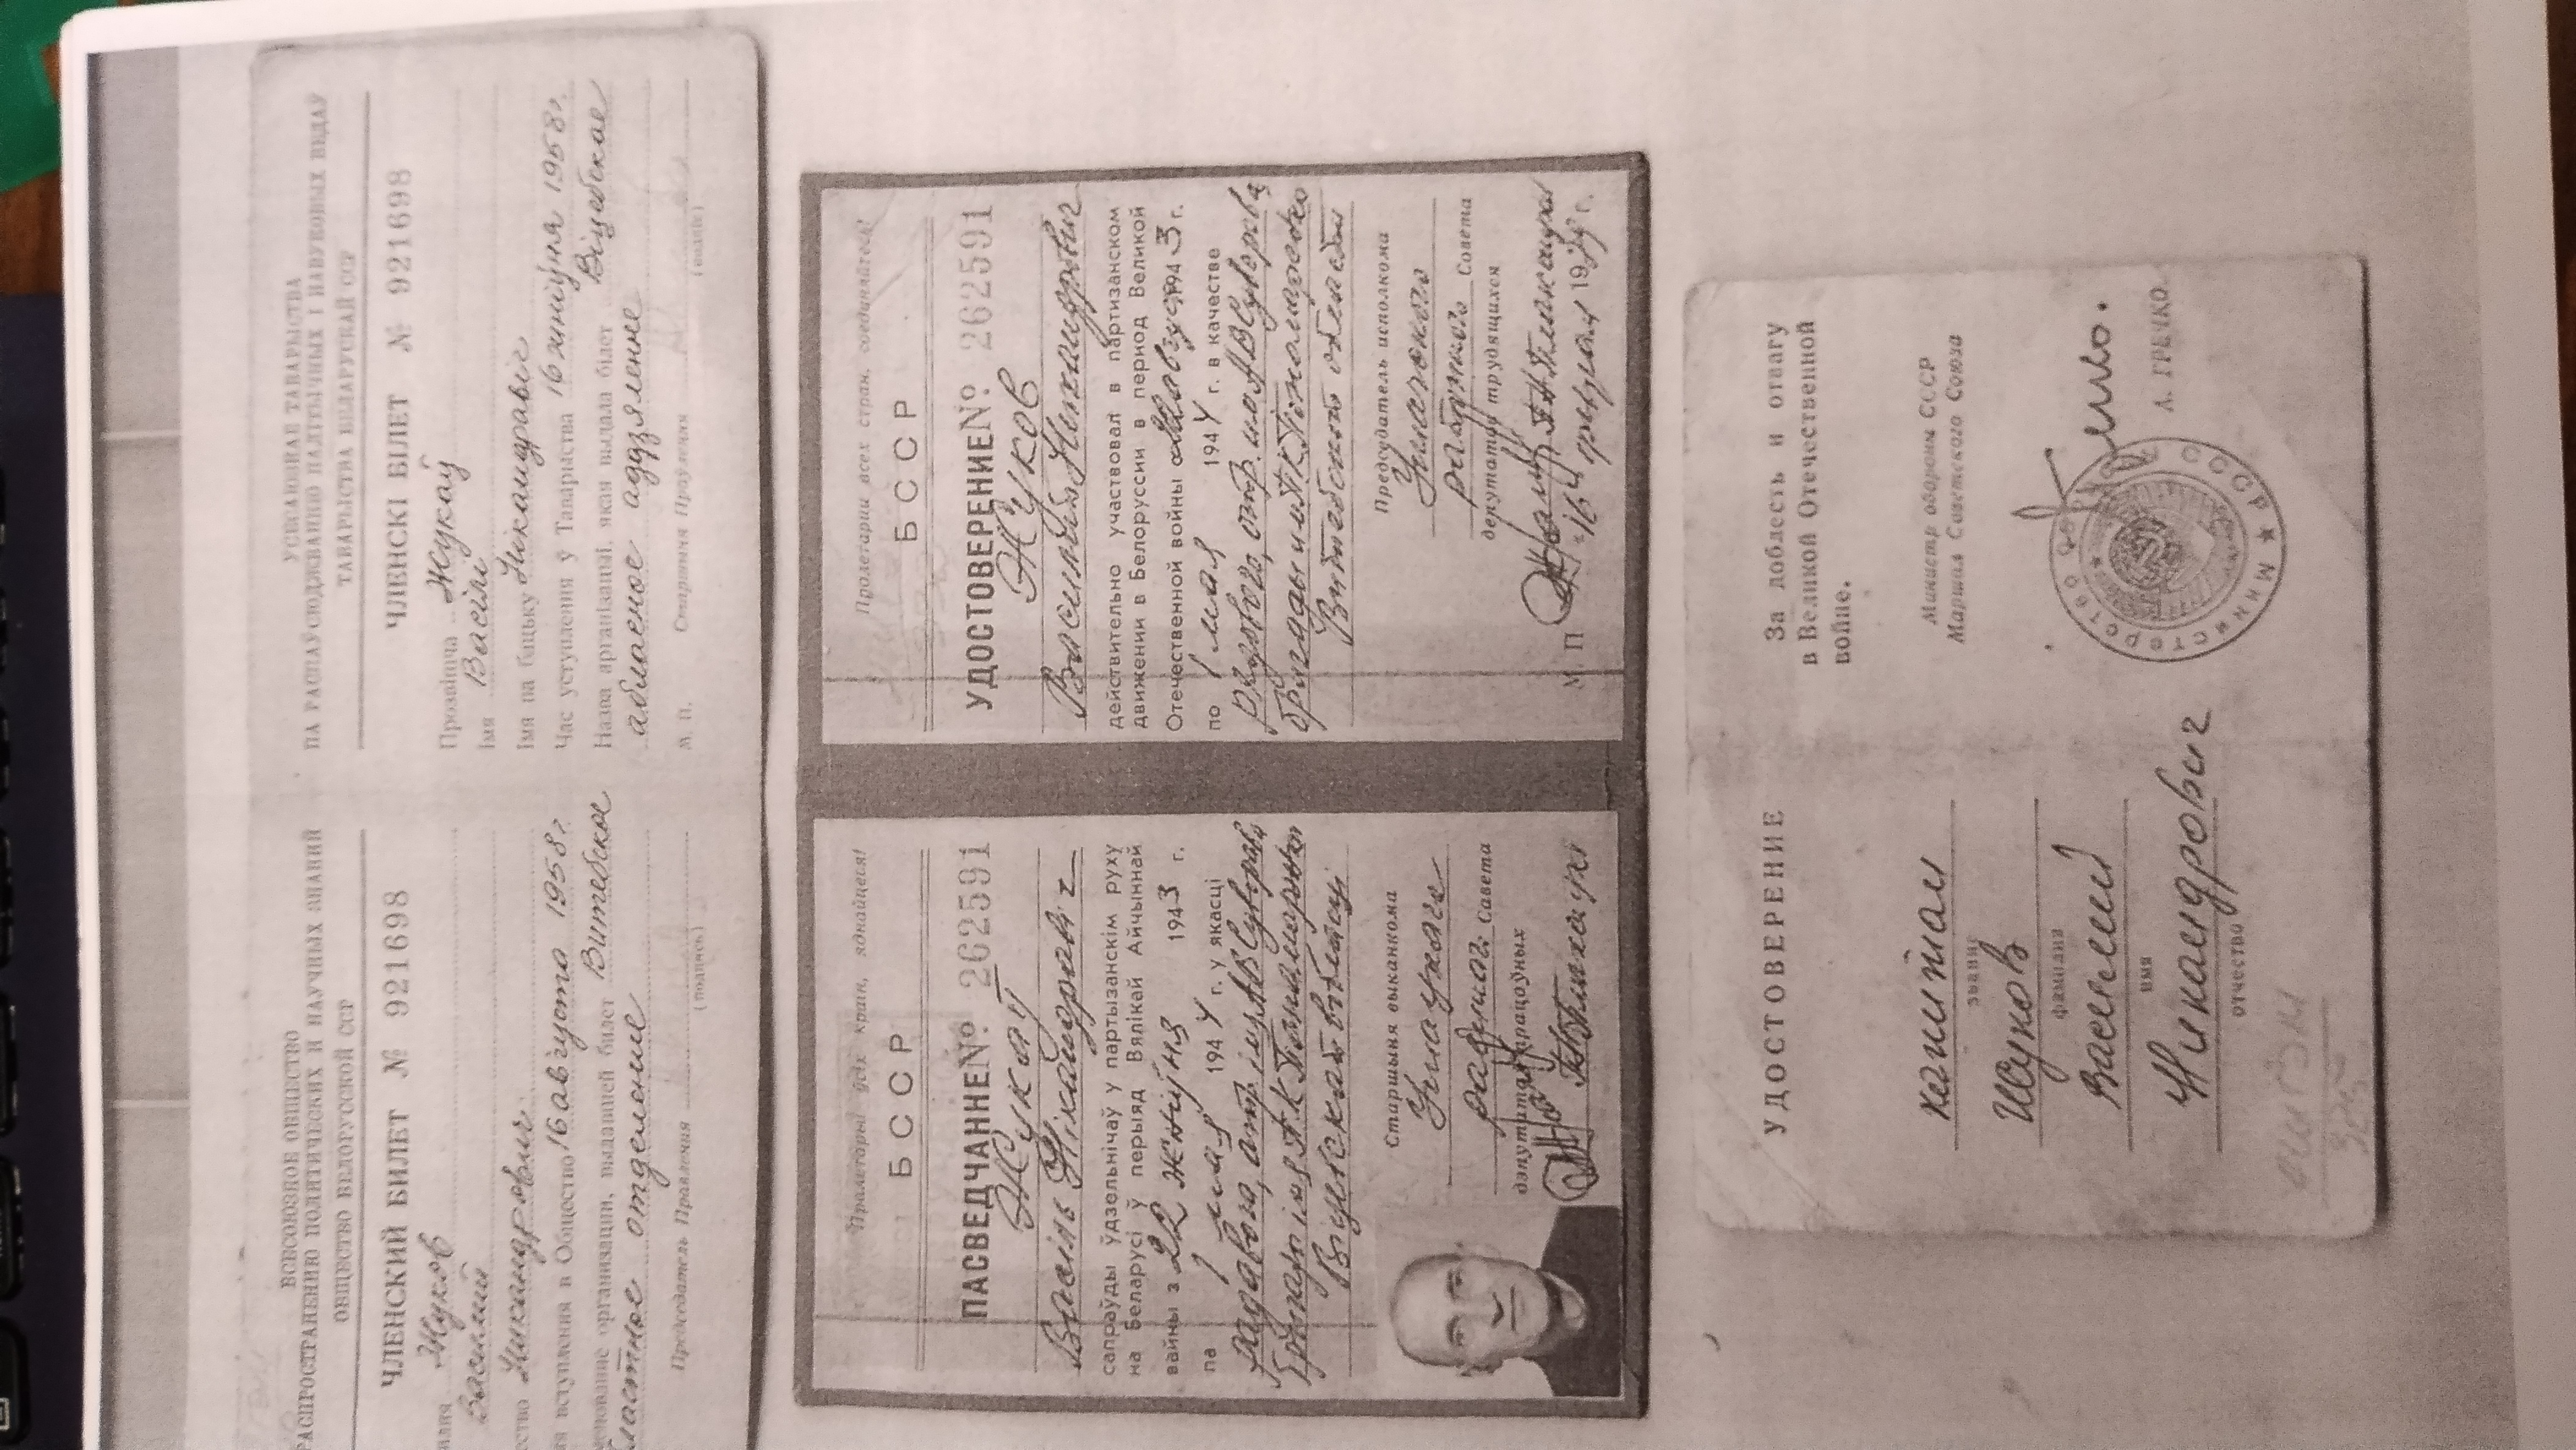 ВСЕСОЮЗНОЕ ОБЩЕСТВО
РАСПРОСТРАНЕНИЮ ПОЛИТИЧЕСКИХ И НАУЧНЫХ ЗНАНИЙ
ОБЩЕСТВО БЕЛОРУССКОЙ ССР
ЧЛЕНСКИЙ БИЛЕТ № 921698
Жуков
Василий
Никандрович
вступления в Общество 16 августа 1958 г.
организации, выдавшей билет Витебское
отделение
Председатель Правления
(подпись)
УСЕСАЮЗНАЕ ТАВАРЫСТВА
ПА РАСПАЎСЮДЖВАННЮ ПАЛІТЫЧНЫХ І НАВУКОВЫХ ВЕДАЎ
ТАВАРЫСТВА БЕЛАРУСКАЙ ССР
ЧЛЕНСКІ БІЛЕТ № 921698
Прозвішча Жукаў
Імя Васілі
Імя па бацьку Нікандравіч
Час уступлення ў Таварыства 16 жніўня 1958 г.
Назва арганізацыі, якая выдала білет Віцебскае
абласное аддзяленне
М. П. Старшыня Праўлення
(подпіс)
Пралетарыі ўсіх краін, яднайцеся!
БССР
ПАСВЕДЧАННЕ № 262591
Жукаў
Васіль Нікандравіч
сапраўды ўдзельнічаў у партызанскім руху
на Беларусі ў перыяд Вялікай Айчыннай
вайны з 22 жніўня 1943 г.
па 1 мая 1944 г. у якасці
радавога, атр. імя А В Суворава
брыгады імя П К Панамарэнко
Віцебскай вобласці
Старшыня выканкома
Ушацкага
раённага Савета
дэпутатаў працоўных
Пролетарии всех стран, соединяйтесь!
БССР
УДОСТОВЕРЕНИЕ № 262591
Жуков
Василий Никандрович
действительно участвовал в партизанском
движении в Белоруссии в период Великой
Отечественной войны с августа 1943 г.
по 1 мая 1944 г. в качестве
рядового, отр. им. А В Суворова
бригады им. П К Пономаренко
Витебской области
Председатель исполкома
Ушачского
районного Совета
депутатов трудящихся
М. П. "16" февраля г.
УДОСТОВЕРЕНИЕ
капитан
звание
Жуков
фамилия
Василий
имя
Никандрович
отчество
За доблесть и отвагу
в Великой Отечественной
войне.
Министр обороны СССР
Маршал Советского Союза
А. ГРЕЧКО
МИНИСТЕРСТВО ОБОРОНЫ СССР